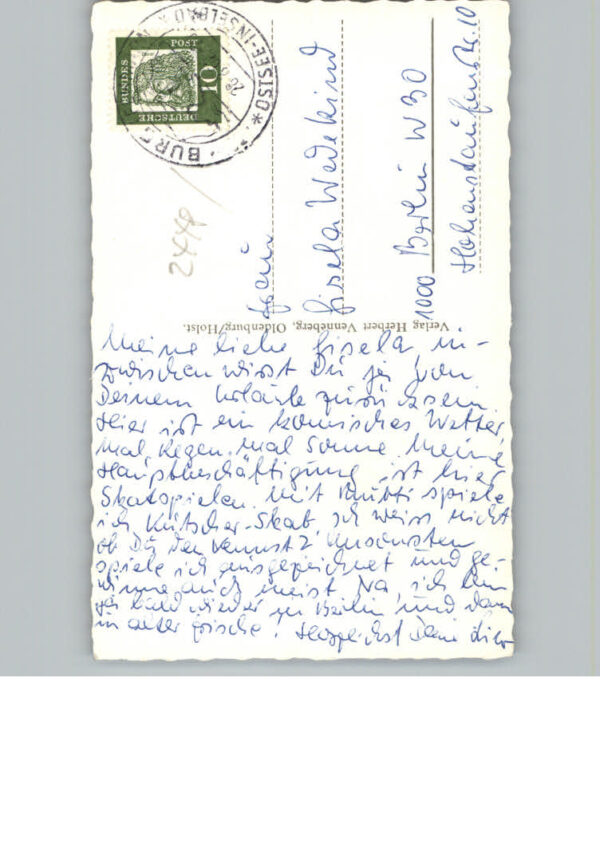 Meine liebe Gisela, in-
zwischen wirst Du ja von
Deinem Urlaub zurück sein.
Hier ist ein komisches Wetter,
mal Regen, mal Sonne. Meine
Hauptbeschäftigung ist hier
Skatspielen. Mit Mutti spiele
ich Kutscher-Skat, ich weiss nicht
ob Du den kennst? Ansonsten
spiele ich ausgezeichnet und ge-
winne auch meist. Na, ich bin
ja bald wieder in Berlin und dann
in alter Frische! Herzlichst Deine
Verlag Herbert Venneberg, Oldenburg/Holst.
Frau
Gisela Wedekind
1000 Berlin W 30
Hohenstaufenstr. 10
2448
DEUTSCHE
BUNDES
POST
10
BURG
OSTSEE-INSELBAD